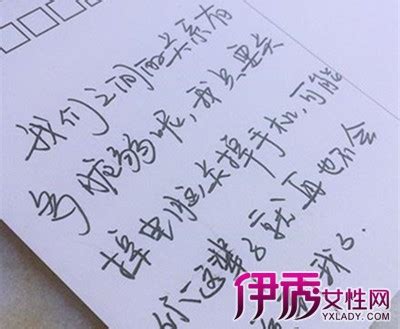 我们之间的关系有
多脆弱呢,我只要关
掉电脑,关掉手机,可能
你这辈子就再也不会
我了.
伊秀女性网
YXLADY.COM